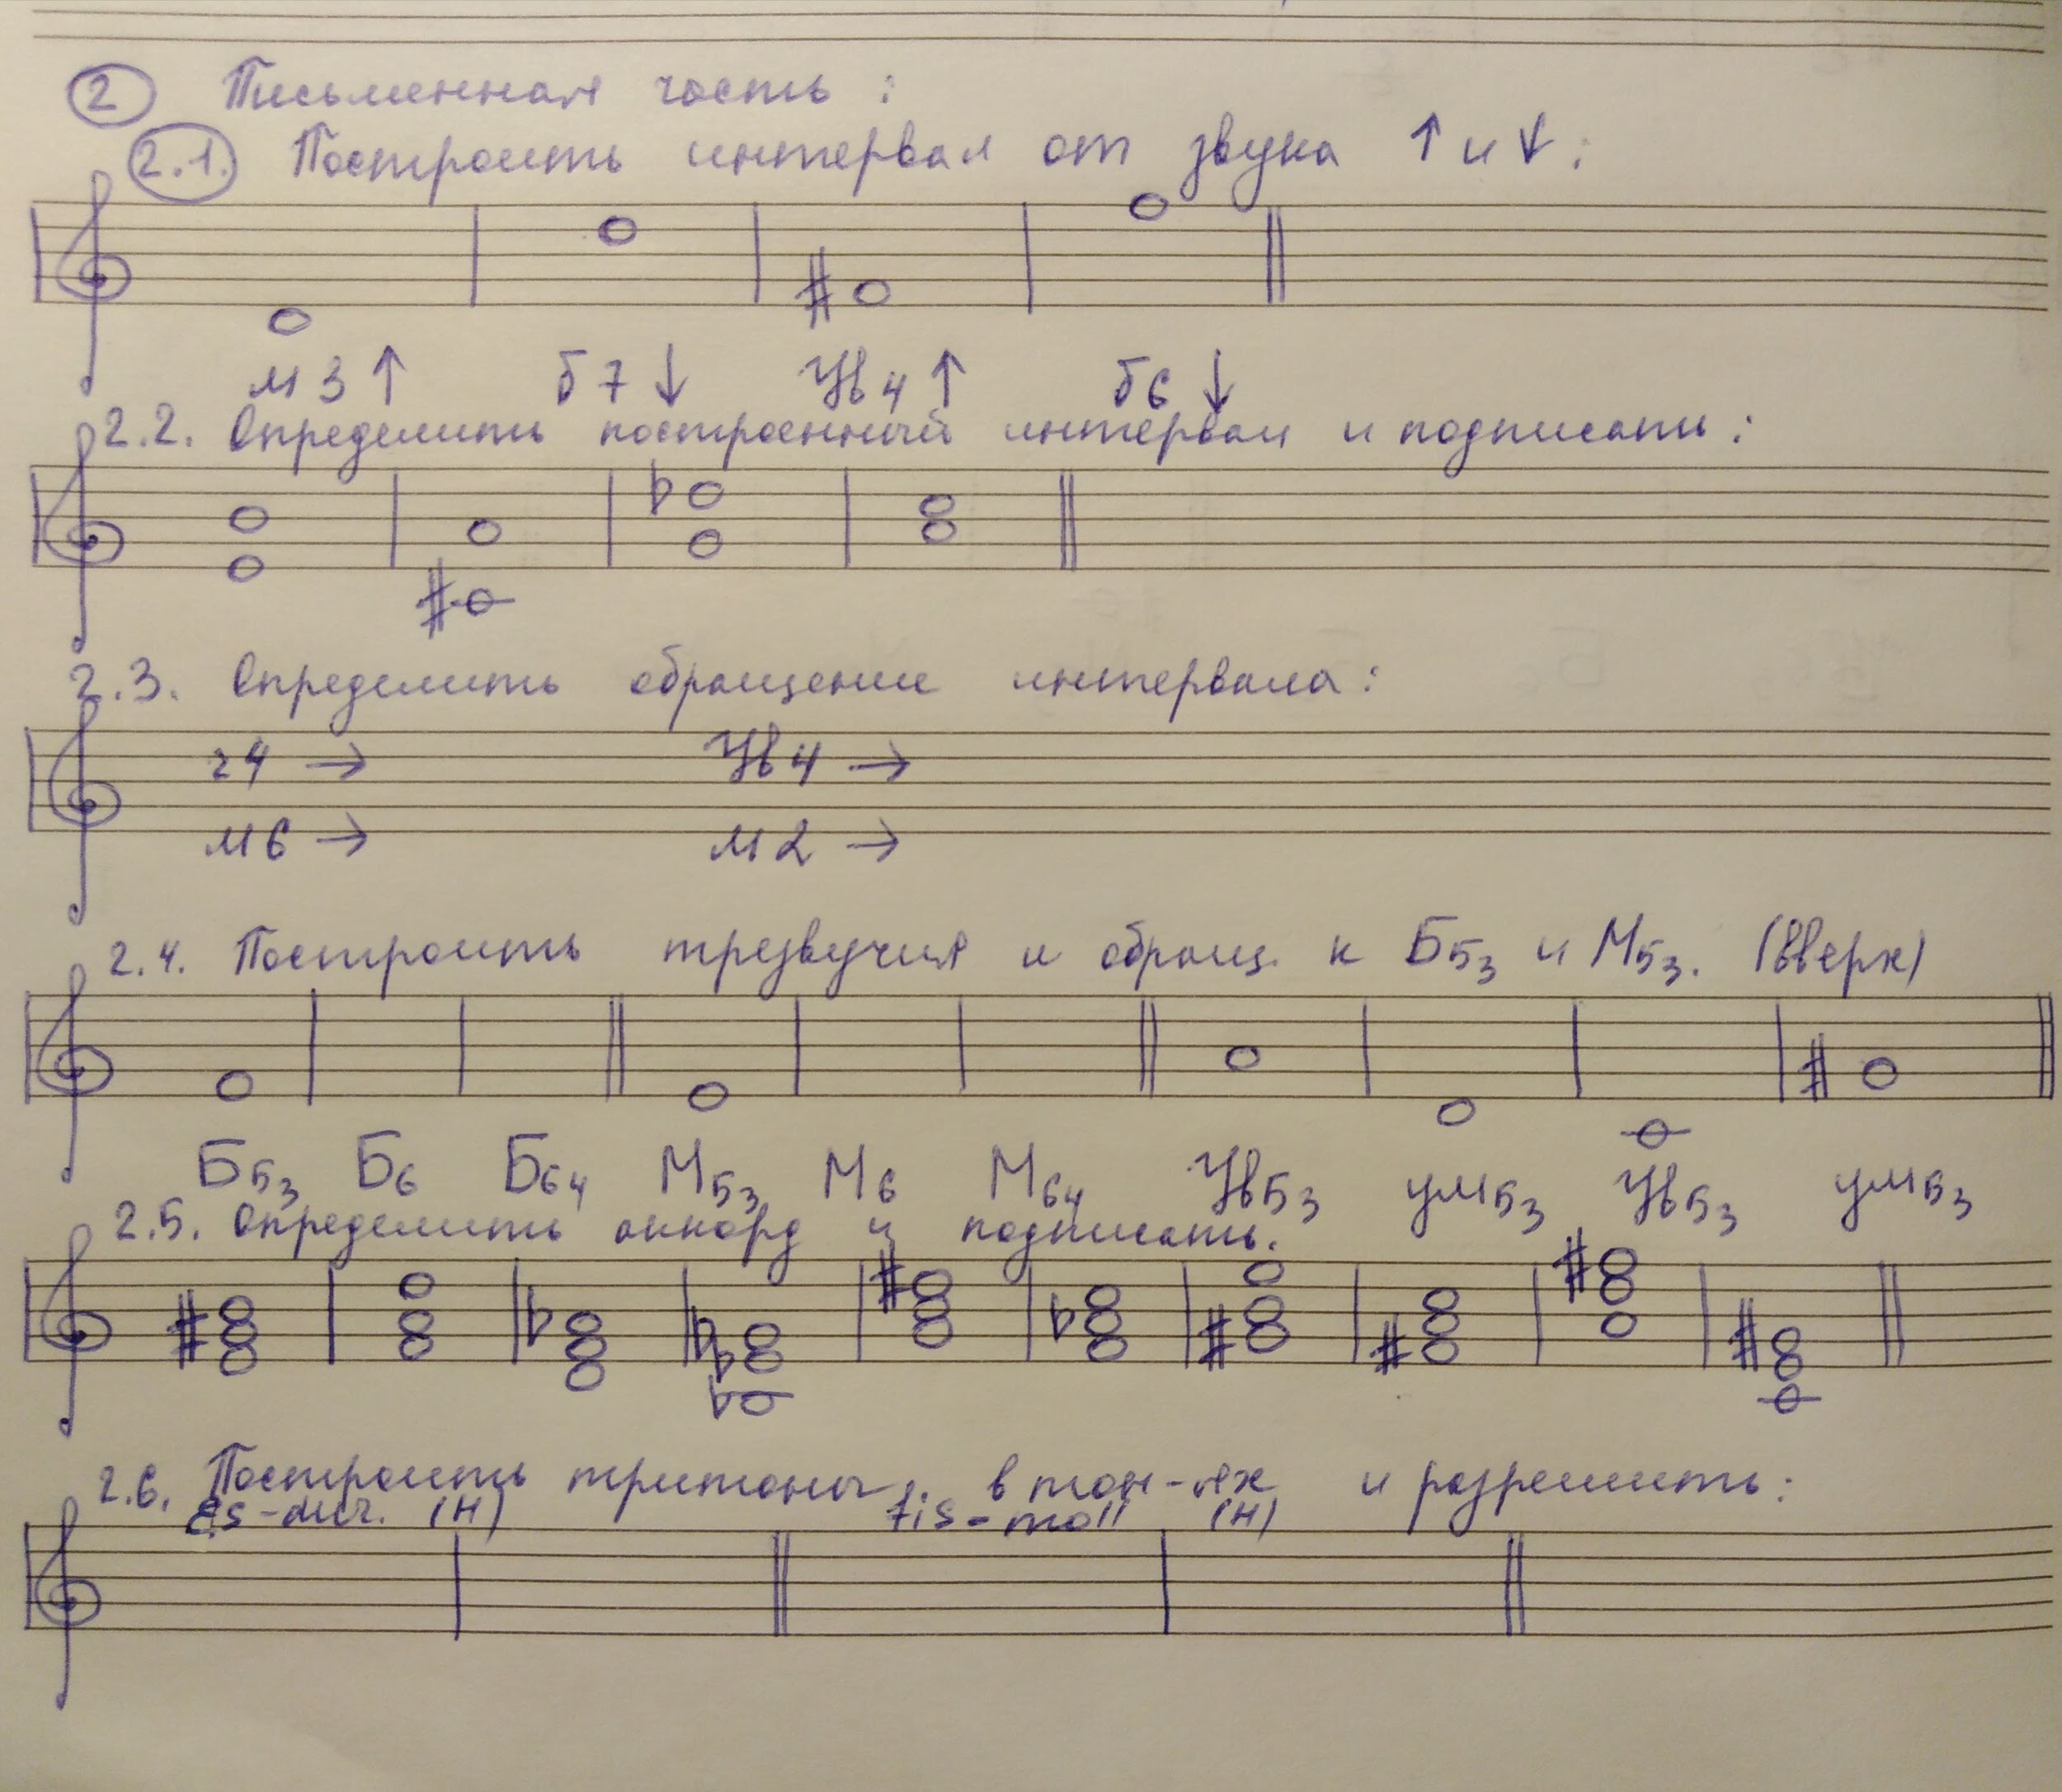 2 Письменная часть:
2.1. Построить интервал от звука ↑ и ↓:
м3 ↑ б7 ↓ Ув4 ↑ б6 ↓
2.2. Определить построенный интервал и подписать:
2.3. Определить обращение интервала:
ч4 → Ув4 →
м6 → м2 →
2.4. Построить трезвучия и обращ. к Б53 и М53. (вверх)
Б53 Б6 Б64 М53 М6 М64 Ув53 ум53 Ув53 ум53
2.5. Определить аккорд и подписать.
2.6. Построить тритоны в тон-ях и разрешить:
Es-dur. (Н) fis-moll (Н)